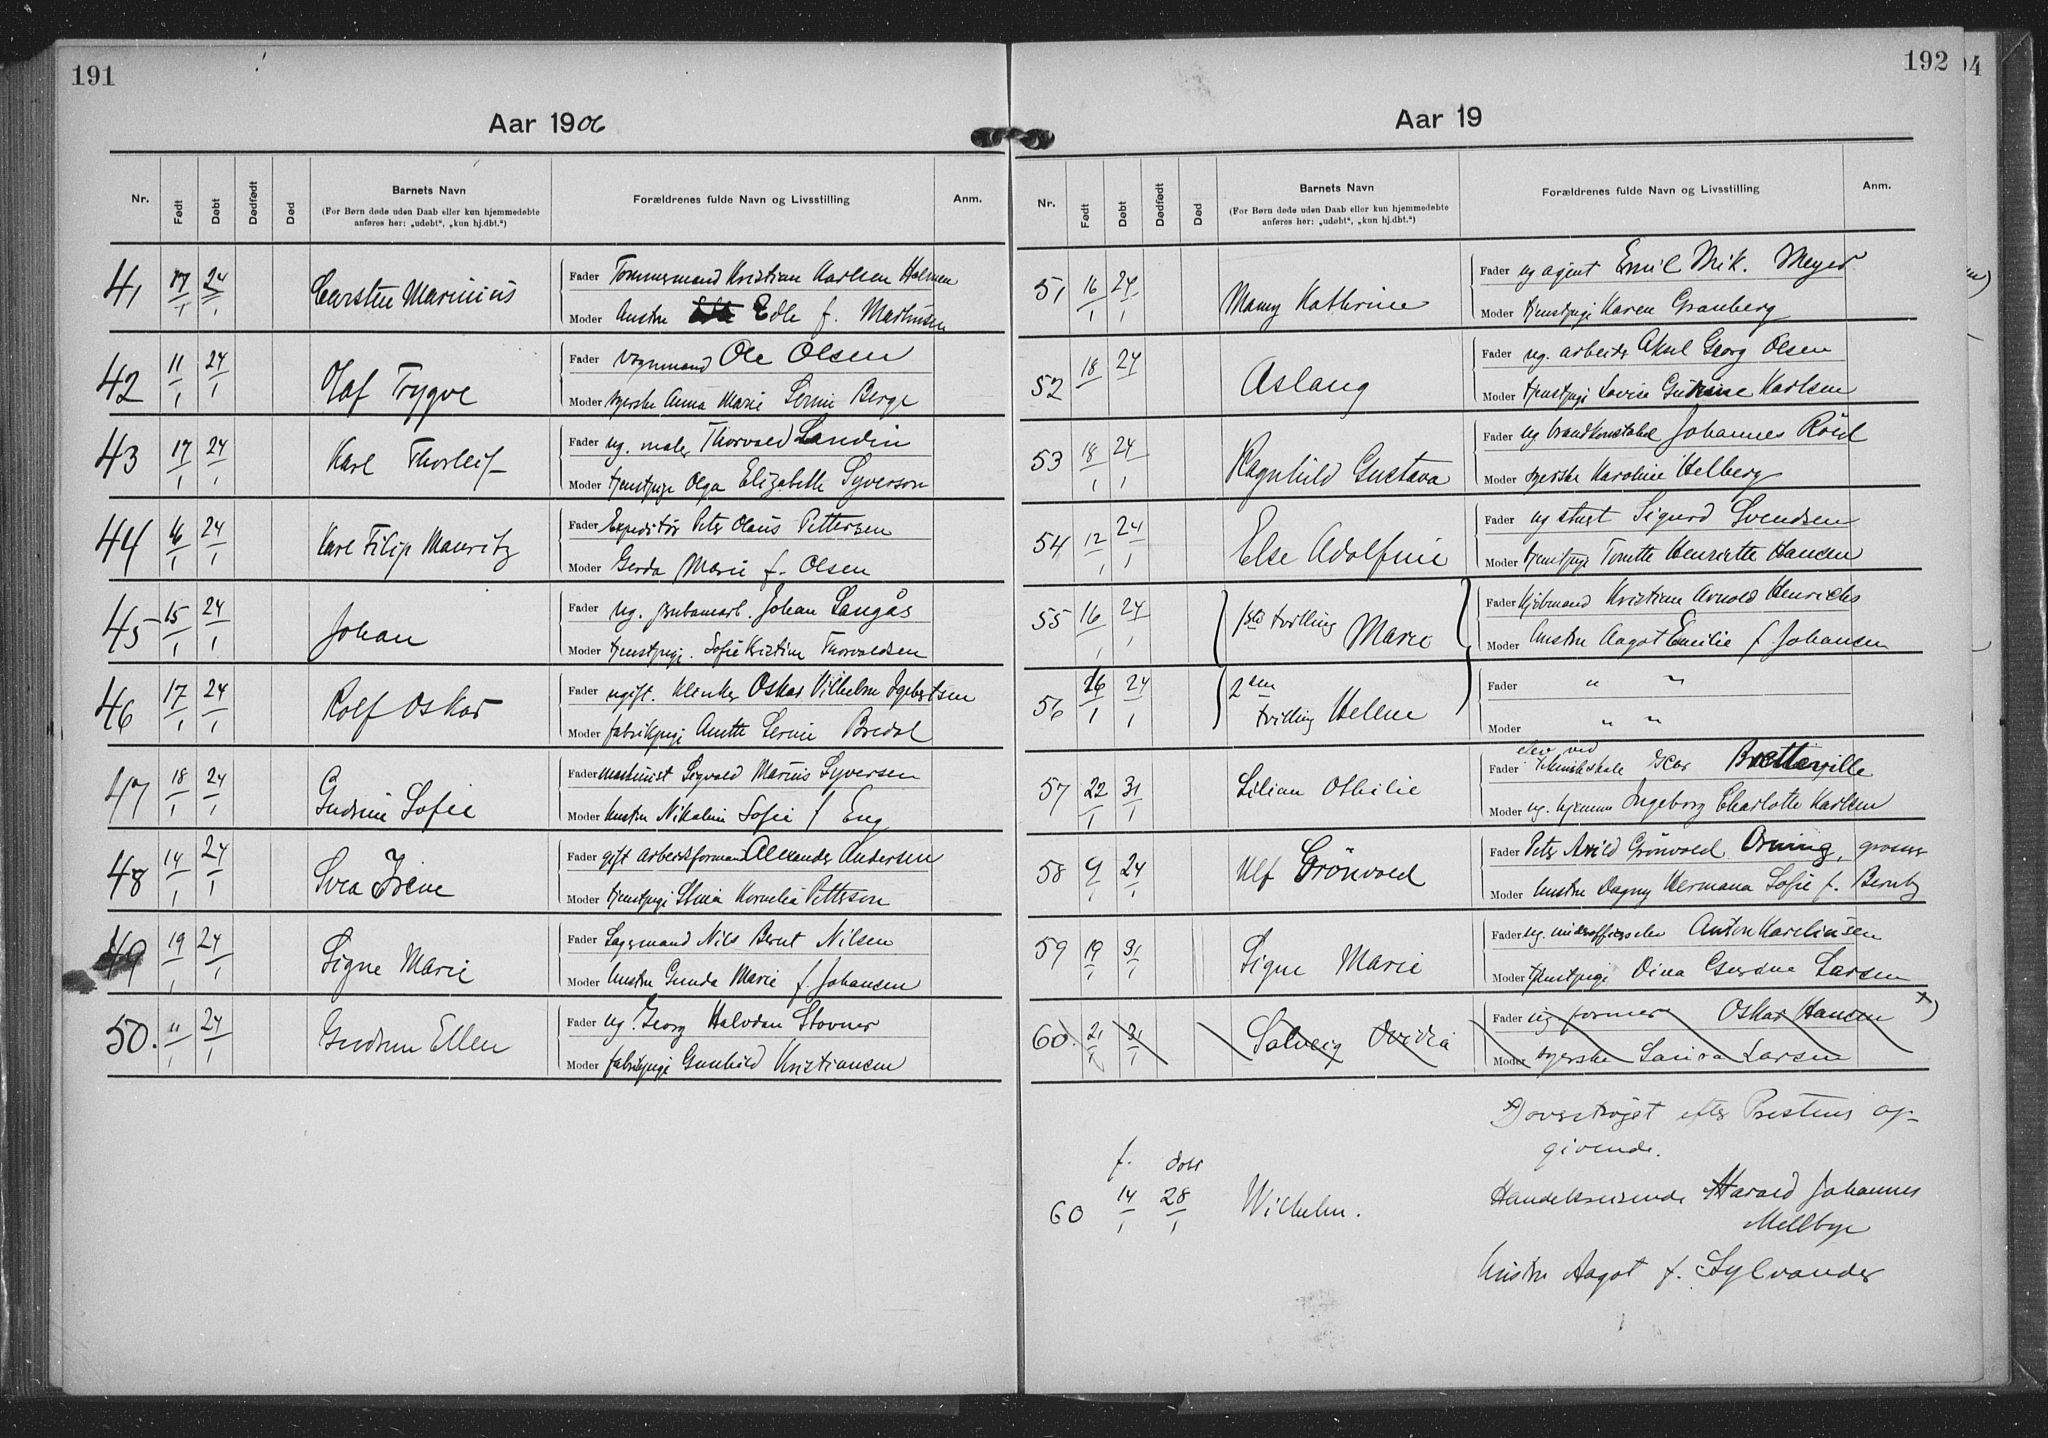 191
Aar 1906
Nr.
Født
Døbt
Dødfødt
Død
Barnets Navn
(For Børn døde uden Daab eller kun hjemmedøbte
anføres her: „udøbt“, „kun hj.dbt.“)
Forældrenes fulde Navn og Livsstilling
Anm.
41 17/1 24/1 Carsten Marinius
Fader Tømmermand Kristian Karlsen Holmen
Moder Hustru Edle f. Mathisen
42 11/1 24/1 Olaf Trygve
Fader Vognmand Ole Olsen
Moder syerske Anna Marie Berge
43 17/1 24/1 Karl Thorleif
Fader ug. maler Thorvald Landin
Moder tjenstpige Olga Elizabeth Syverson
44 16/1 24/1 Karl Filip Mauritz
Fader Expeditør Peter Olaus Pettersen
Moder Gerda Marie f. Olsen
45 15/1 24/1 Johan
Fader ug. Johan Langås
Moder tjenstpige. Sofie Kristine Thorvaldsen
46 17/1 24/1 Rolf Oskar
Fader ugift. Klinker Oskar Vilhelm Igebertsen
Moder fabrikpige Anette Bredal
47 18/1 24/1 Gudrun Sofie
Fader maskinist Sigvald Marius Syversen
Moder Hustru Nikoline Sofie f Eng
48 14/1 24/1 Svea Irene
Fader gift arbeidsformand Alexander Andersen
Moder tjenstpige Stina Kornelia Petterson
49 19/1 24/1 Signe Marie
Fader Lagermand Nils Bernt Nilsen
Moder Hustru Gunda Marie f. Johansen
50. 11/1 24/1 Gudrun Ellen
Fader ug. Georg Halvdan Stovner
Moder fabrikpige Gunhild Kristiansen
192
Aar 19
Nr.
Født
Døbt
Dødfødt
Død
Barnets Navn
(For Børn døde uden Daab eller kun hjemmedøbte
anføres her: „udøbt“, „kun hj.dbt.“)
Forældrenes fulde Navn og Livsstilling
Anm.
51 16/1 24/1 Mamy Kathrine
Fader ug agent Emil Mik. Meyer
Moder tjenstpige Karen Granberg
52 18/1 24/1 Aslaug
Fader ug. arbeider Aksel Georg Olsen
Moder tjenstpige Lovise Karlsen
53 18/1 24/1 Ragnhild Gustava
Fader ug brandkonstabel Johannes Röed
Moder syerske Karoline Helberg
54 12/1 24/1 Else Adolfine
Fader ug Sigurd Svendsen
Moder tjenstpige Tonette Henriette Hansen
55 16/1 24/1 1ste tvilling Marie
Fader Kjøbmand Kristian Arnold Henrichs
Moder Hustru Aagot Emilie f. Johansen
56 16/1 24/1 2den tvilling Helene
Fader " "
Moder " "
57 22/1 31/1 Lilian Othilie
Elev ved
Fader Bretteville
Moder ug. hjemme Ingeborg Charlotte Karlsen
58 9/1 24/1 Ulf Grönvold
Fader Peter Arild Grönvold Orning, grosser
Moder Hustru Dagny Hermana Sofie f. Bernby
59 19/1 31/1 Signe Marie
Fader ug. underofficer Anton Karelinsen
Moder tjenstpige Dina Larsen
60. 21/1 31/1 Solveig Ovidia
Fader ug former Oskar Hansen x)
Moder syerske Laura Larsen
x) overstrøget efter Prestens op-
givende.
f. døbt
60 14/1 28/1 Wilhelm.
Handelsreisende Harald Johannes
Mellbye
Hustru Aagot f. Sylvander